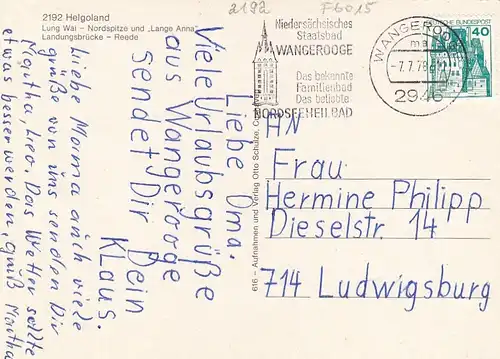 2192 Helgoland
Lung Wai – Nordspitze und „Lange Anna"
Landungsbrücke – Reede
2192 F6015
Niedersächsisches
Staatsbad
WANGEROOGE
Das bekannte
Familienbad
Das beliebte
NORDSEEHEILBAD
WANGEROOGE
-7.7.78
2946
DEUTSCHE BUNDESPOST
40
Liebe Oma.
Viele Urlaubsgrüße
aus Wangerooge
sendet Dir Dein
Klaus.
Liebe Mama auch viele
grüße von uns senden Dir
Martha, Leo. Das Wetter sollte
etwas besser werden, gruß Martha
616 – Aufnahmen und Verlag Otto Schulze,
AN
Frau
Hermine Philipp
Dieselstr. 14
714 Ludwigsburg